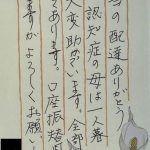 当の配達ありがとう
認知症の母は一人暮
大変助かっています。全部
てあります。口座振替
ますがよろしくお願い